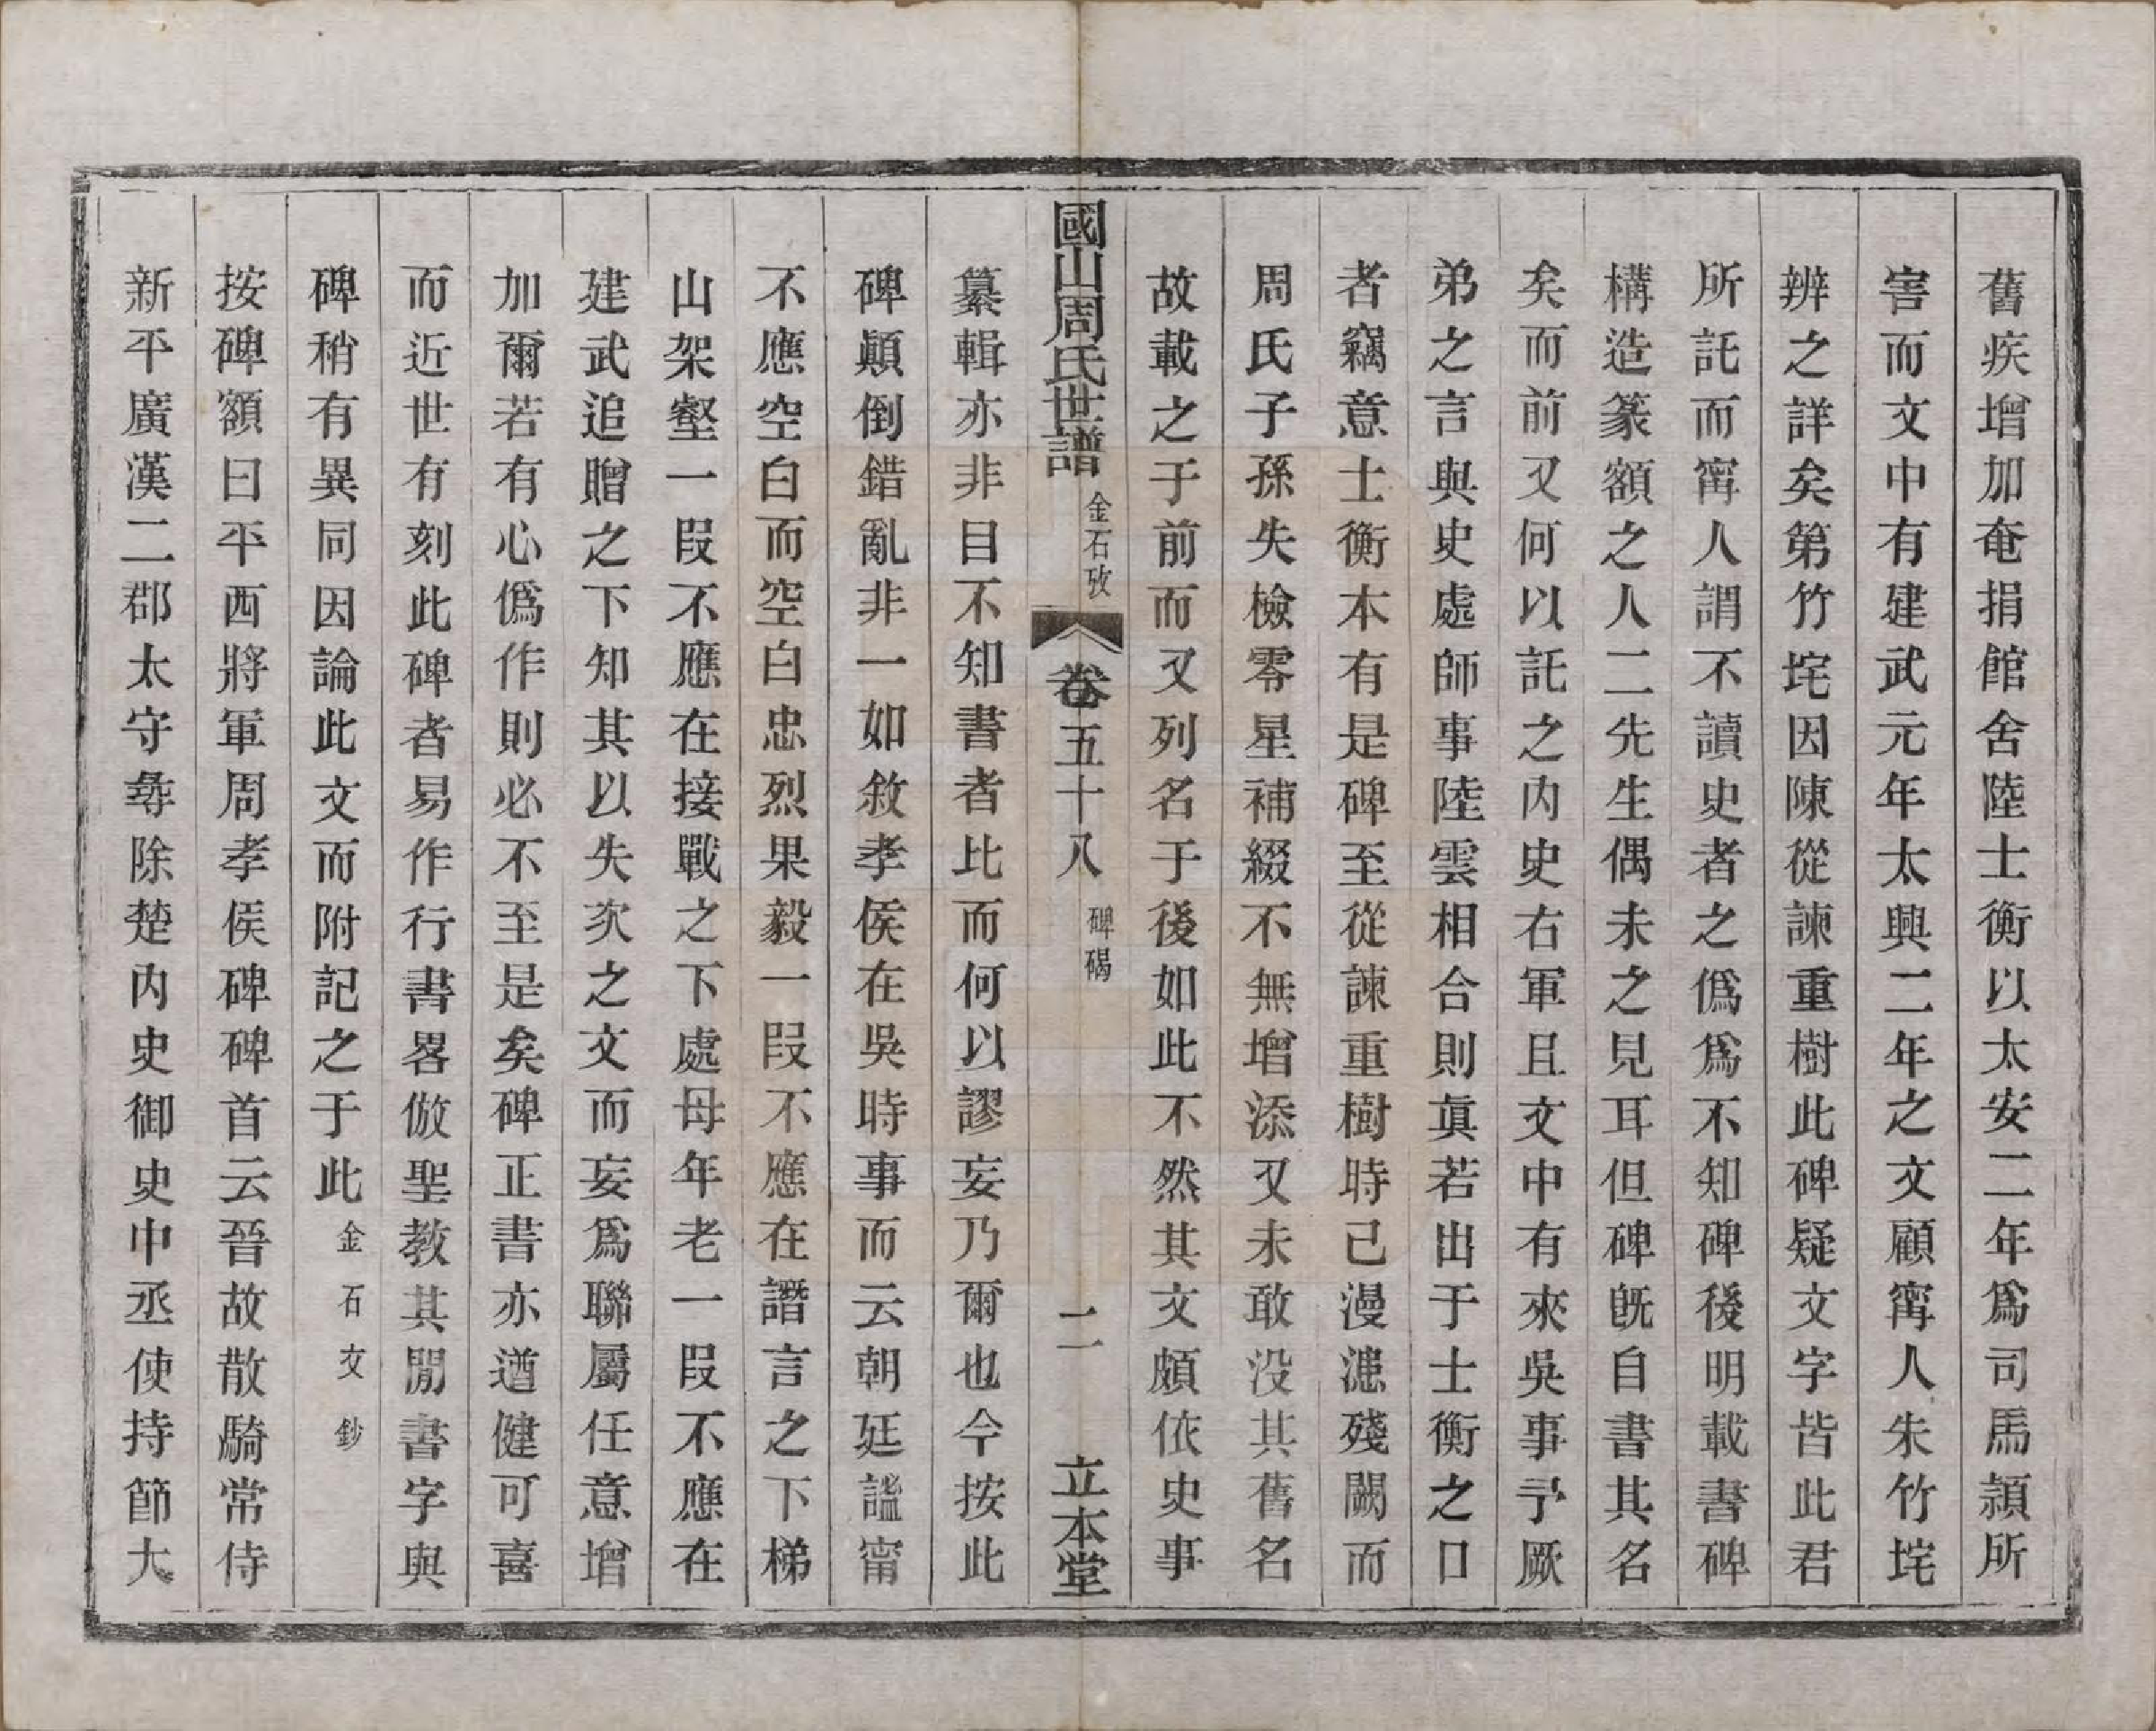 舊疾增加奄捐館舍陸士衡以太安二年爲司馬潁所
害而文中有建武元年太興二年之文顧甯人朱竹垞
辨之詳矣第竹垞因陳從諫重樹此碑疑文字皆此君
所託而甯人謂不讀史者之僞爲不知碑後明載書碑
構造篆額之人二先生偶未之見耳但碑旣自書其名
矣而前又何以託之內史右軍且文中有來吳事予厥
弟之言與史處師事陸雲相合則眞若出于士衡之口
者竊意士衡本有是碑至從諫重樹時已漫漶殘闕而
周氏子孫失檢零星補綴不無增添又未敢没其舊名
故載之于前而又列名于後如此不然其文頗依史事
國山周氏世譜 金石攷 卷五十八 碑碣 二 立本堂
纂輯亦非目不知書者比而何以謬妄乃爾也今按此
碑顚倒錯亂非一如敘孝侯在吳時事而云朝廷謚甯
不應空白而空白忠烈果毅一段不應在譖言之下梯
山架壑一段不應在接戰之下處母年老一段不應在
建武追贈之下知其以失次之文而妄爲聯屬任意增
加爾若有心僞作則必不至是矣碑正書亦遒健可喜
而近世有刻此碑者易作行書畧倣聖教其閒書字與
碑稍有異同因論此文而附記之于此 金石文鈔
按碑額曰平西將軍周孝侯碑碑首云晉故散騎常侍
新平廣漢二郡太守尋除楚內史御史中丞使持節大